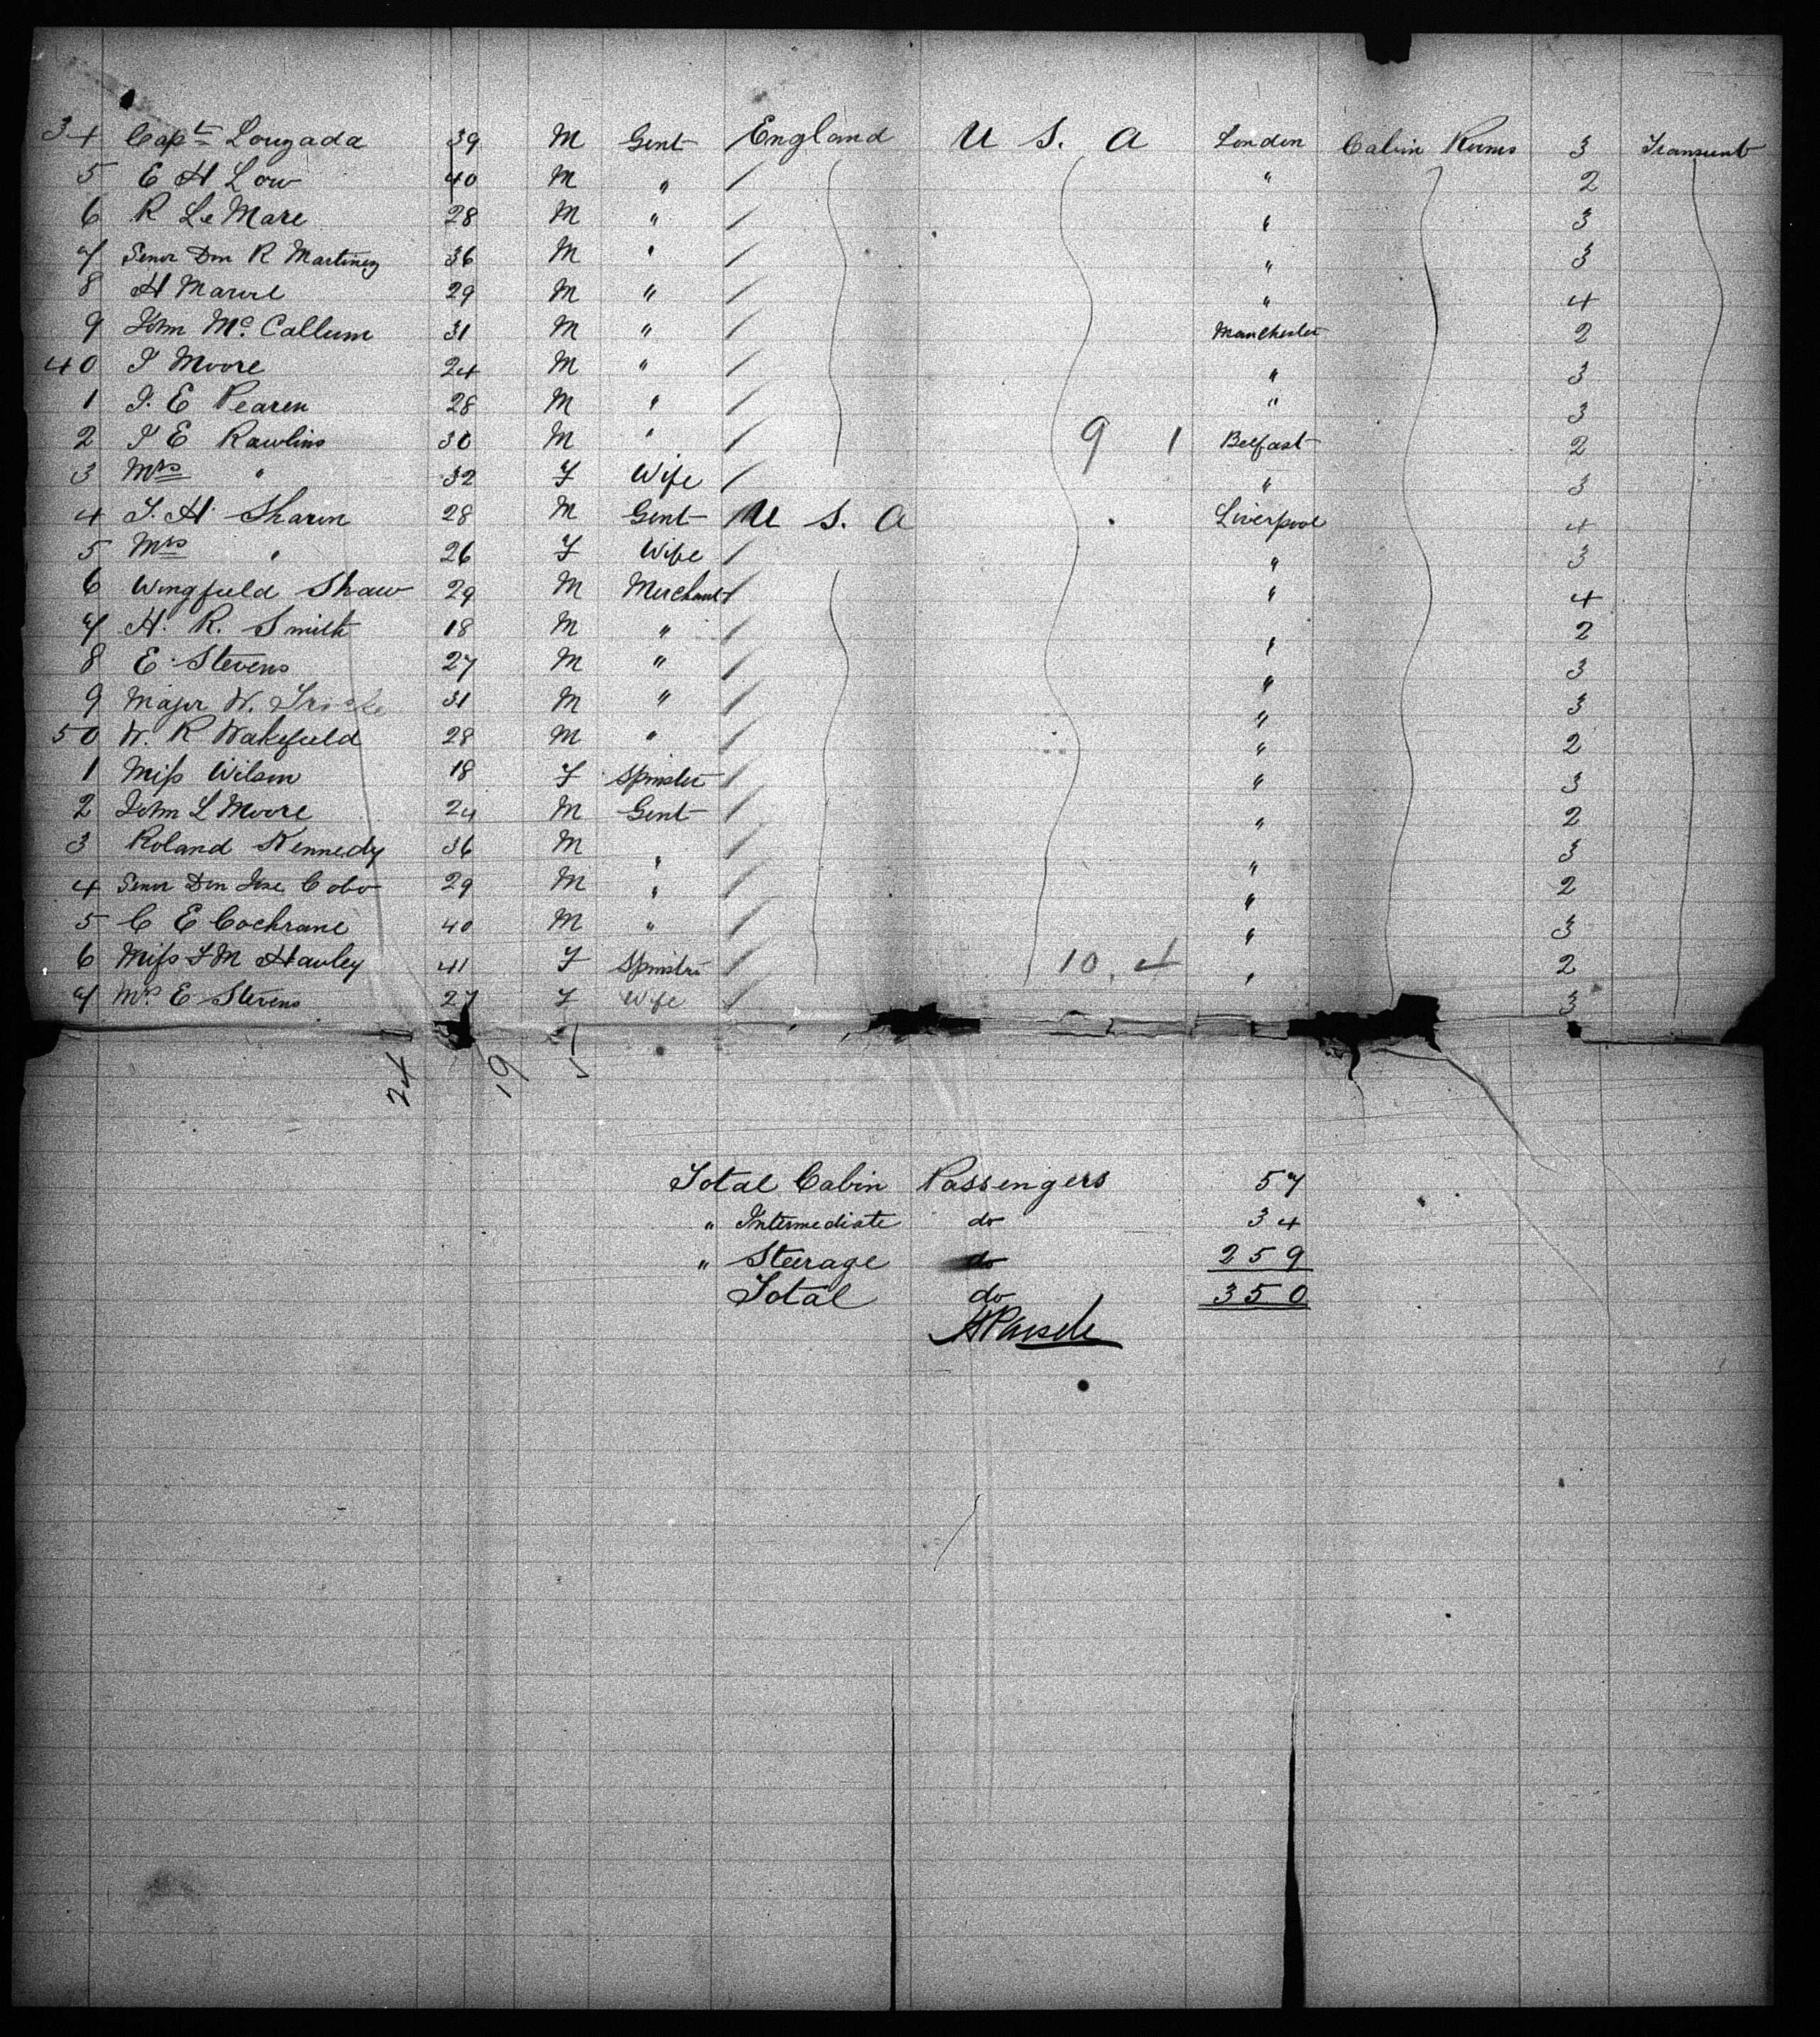 34 Capt Louzada 39 M Gent England U S. A London Cabin Rooms 3 Transient
5 E H Low 40 M " " 2
6 R Le Mare 28 M " " 3
7 Senor Don R Martinez 36 M " " 3
8 H Marvel 29 M " " 4
9 John Mc Callum 31 M " Manchester 2
40 J Moore 24 M " " 3
1 J. E Pearen 28 M " " 3
2 J E Rawlins 30 M " 9 1 Belfast 2
3 Mrs " 32 F Wife " 3
4 J. H. Sharon 28 M Gent U S. A Liverpool 4
5 Mrs " 26 F Wife " 3
6 Wingfield Shaw 29 M Merchant " 4
7 H. R. Smith 18 M " " 2
8 E. Stevens 27 M " " 3
9 Major W. 31 M " " 3
50 W. R Wakefield 28 M " " 2
1 Miss Wilson 18 F Spinster " 3
2 John L Moore 24 M Gent " 2
3 Roland Kennedy 36 M " " 3
4 Senor Don Jose Cobo 29 M " " 2
5 C E Cochrane 40 M " " 3
6 Miss F M Hauley 41 F Spinster 10. 4 " 2
7 Mrs E Stevens 27 F Wife 3
24 19 5
Total Cabin Passengers 57
" Intermediate do 34
" Steerage do 259
Total do 350